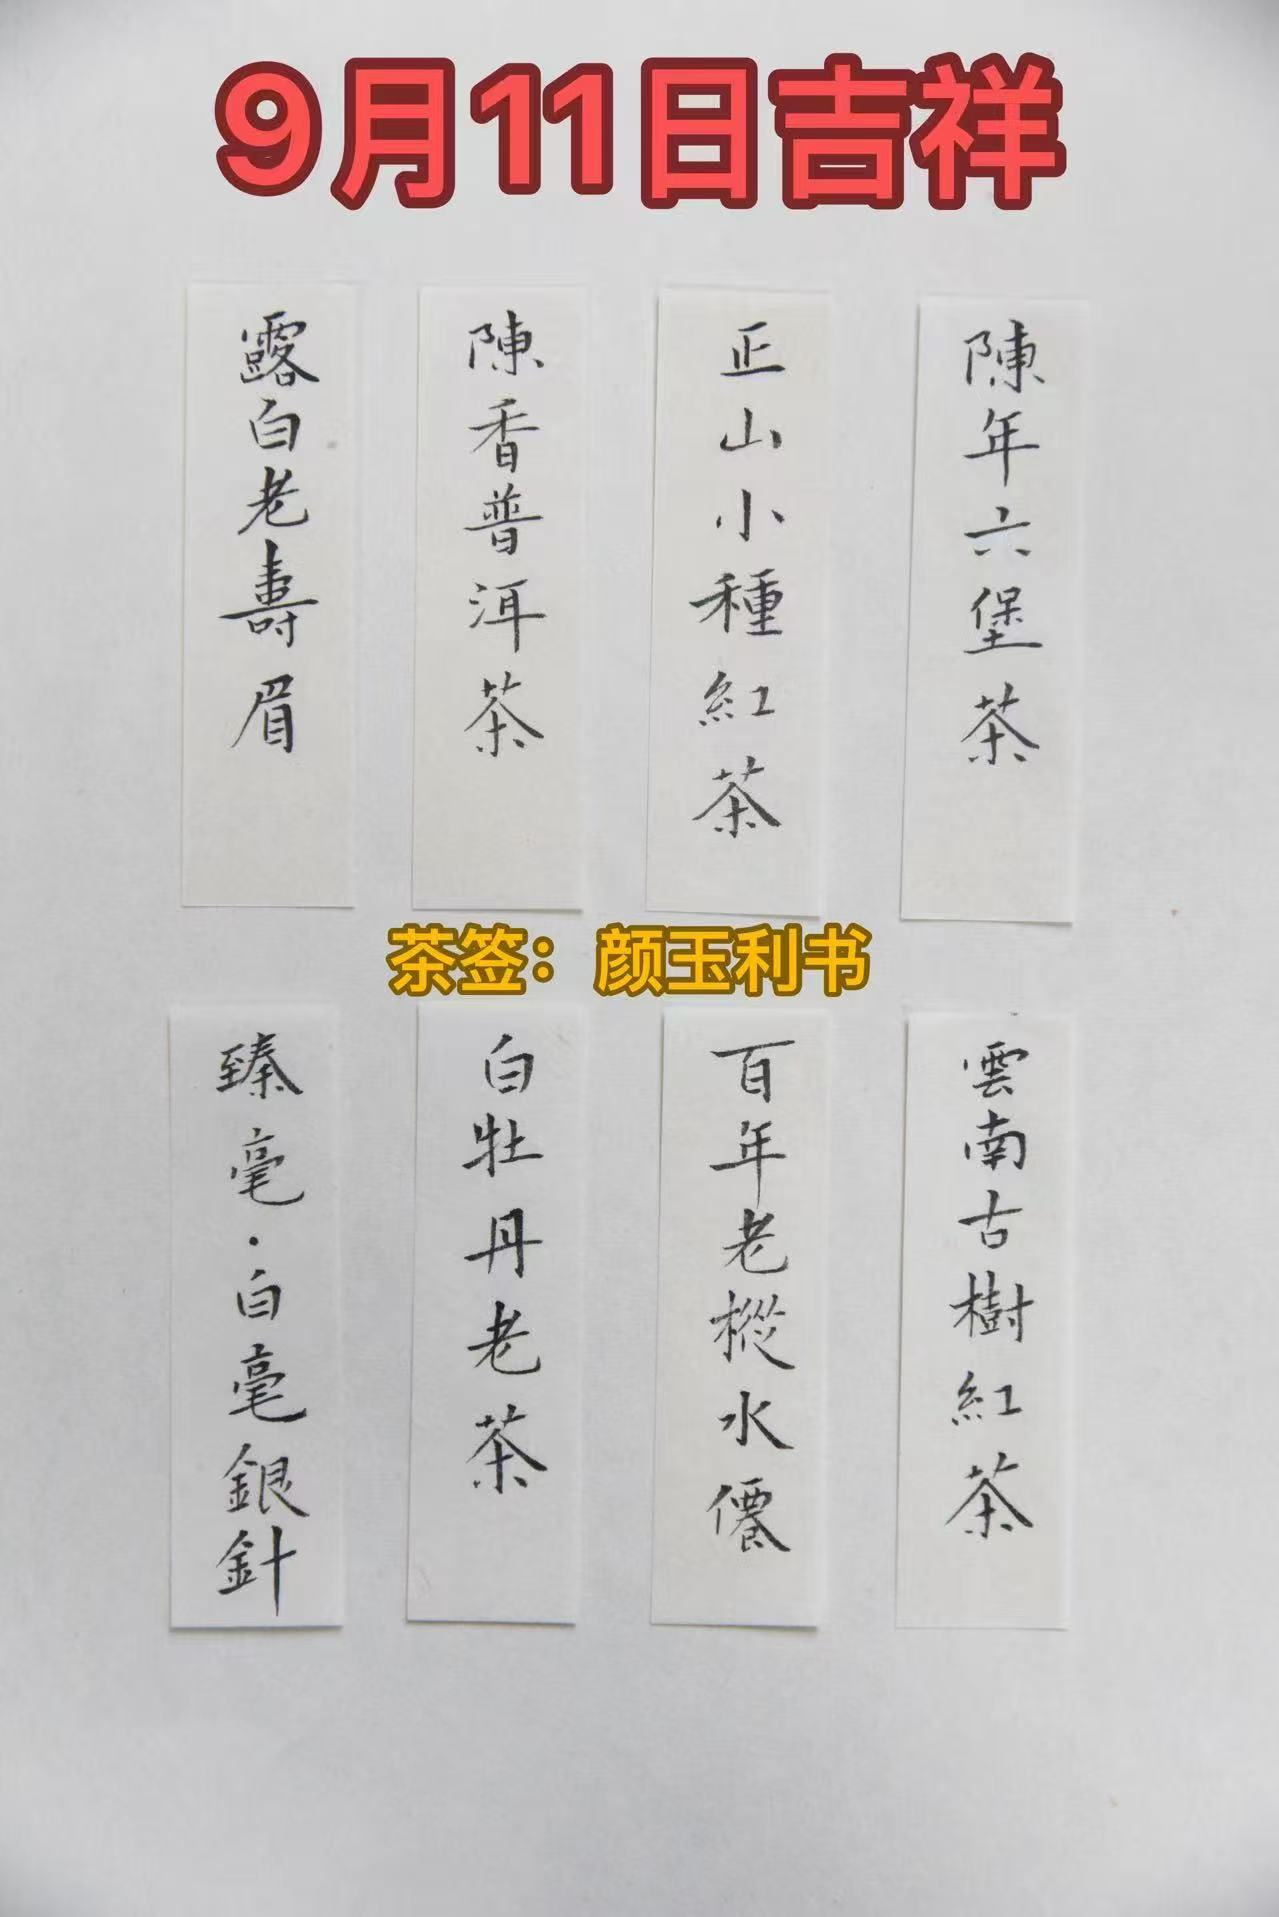 9月11日吉祥
露白老壽眉
陳香普洱茶
正山小種紅茶
陳年六堡茶
茶签：颜玉利书
臻毫·白毫銀針
白牡丹老茶
百年老樅水僊
雲南古樹紅茶